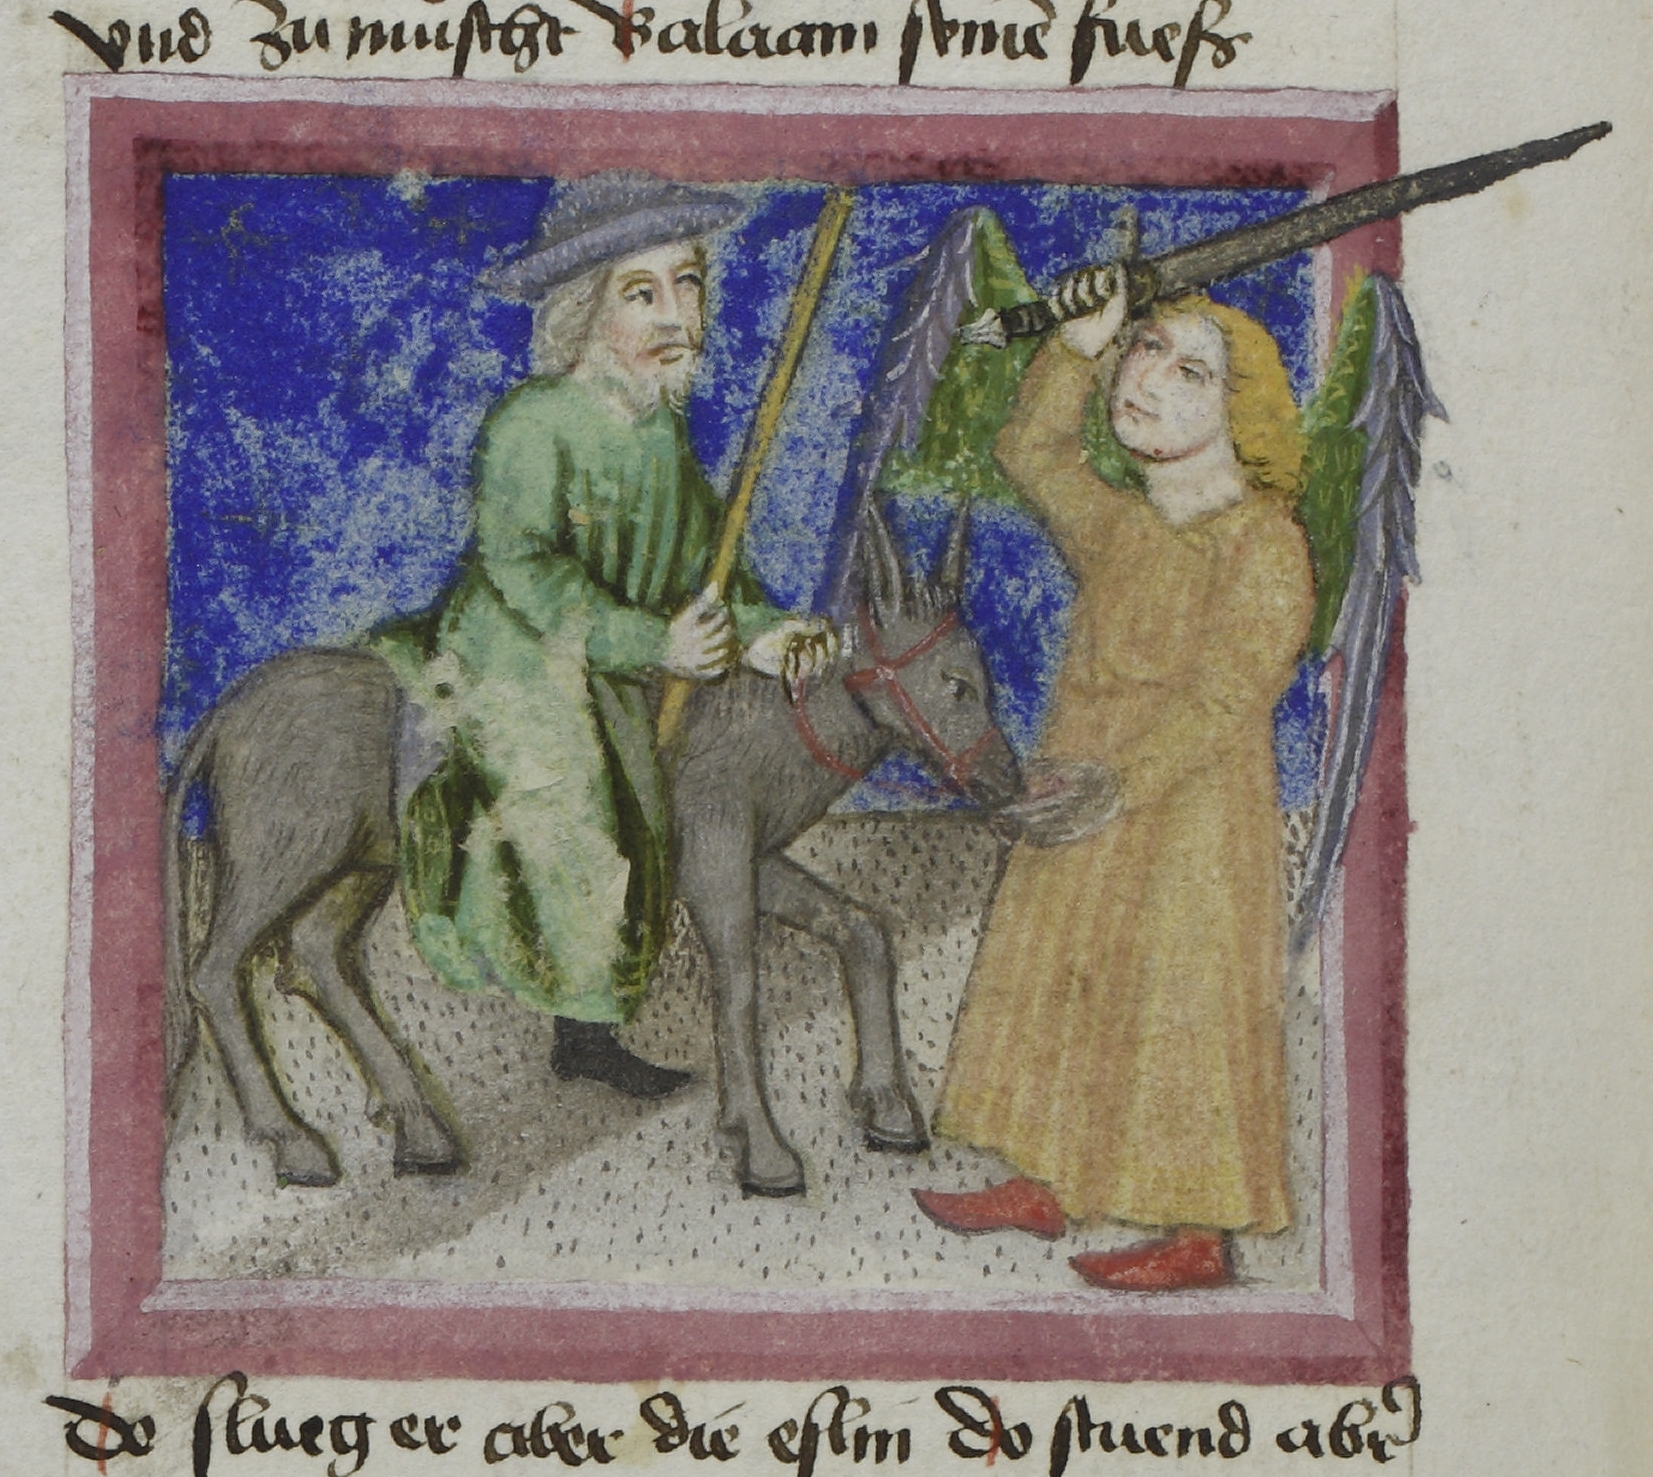 vnd zu müscht Balaam seinē fuess
do slueg er aber die eslin Do stuend abr̉